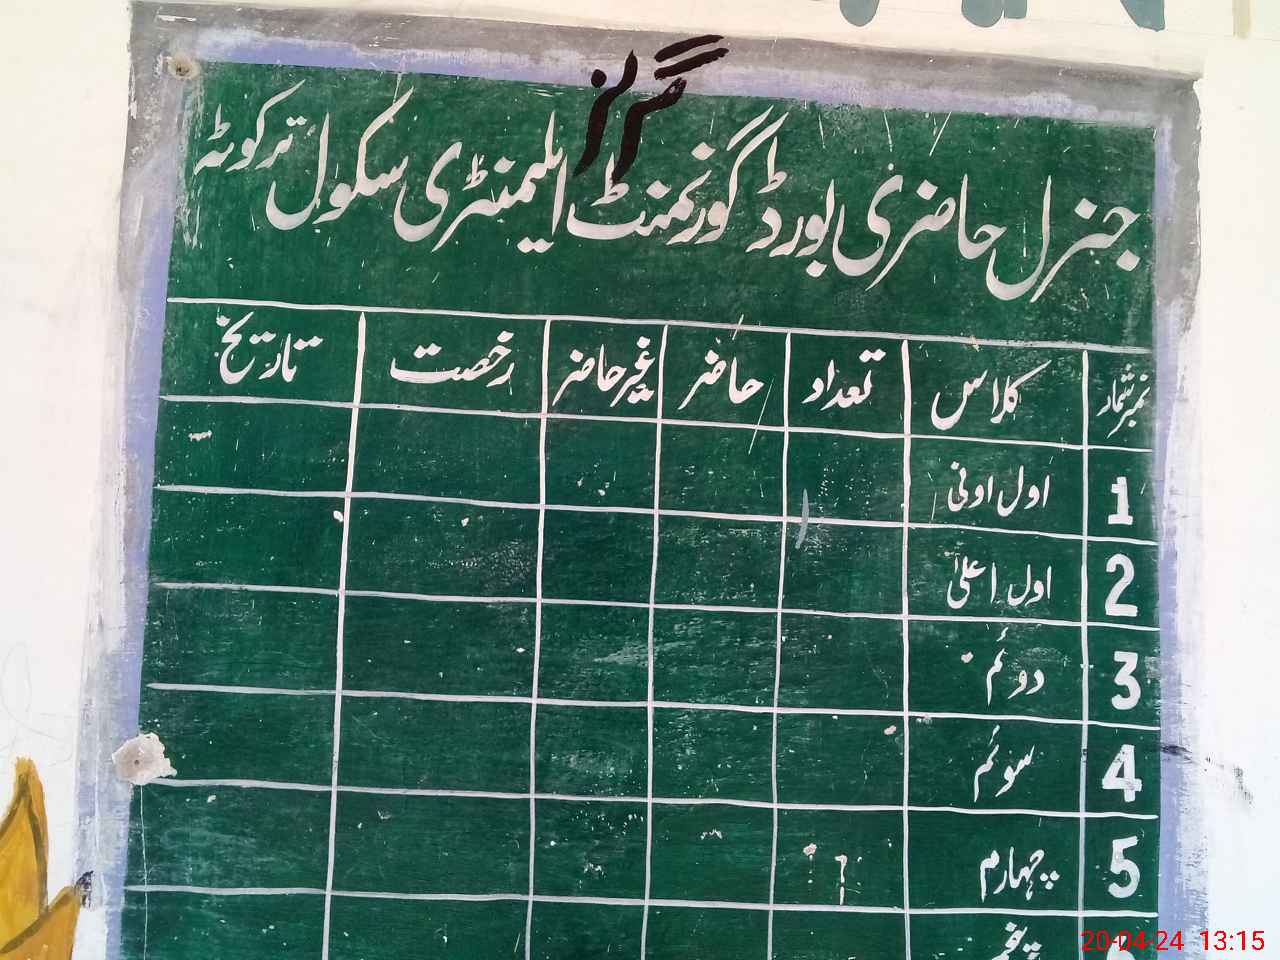 گرلز
جنرل حاضری بورڈ گورنمنٹ ایلیمنٹری سکول ترکوٹہ
نمبر شمار کلاس تعداد حاضر غیر حاضر رخصت تاریخ
1 اول اونی
2 اول اعلیٰ
3 دوئم
4 سوئم
5 چہارم
20-04-24 13:15